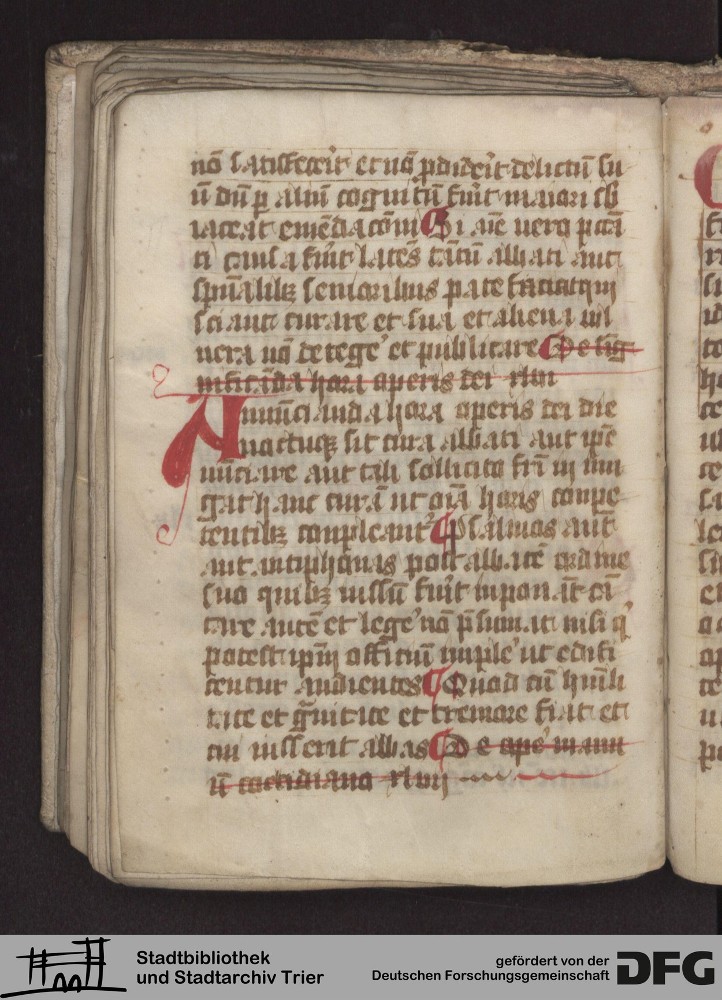 nō satisfec̄it et nō p̄dideīt delictū su
ū dū p aliū cognitū fūit maiori sb
iaceat emēdacōni Si aīe uero pccā
ti causa fūit latēs tātū abbati aut
spūalibꝫ senioribus patefaciat qui
sciant curare et sua et aliena uul
nera nō detegē et publicare De sig
nificāda hora operis dei xlvii
Anuncianda hora operis dei die
noctuqꝫ sit cura abbati aut ipē
nūciare aut tali sollicito frī iniun
gat hanc curā ut oīa horis compe
tentibꝫ compleant᷑ Psalmos aut̄
aut antiphonas post abbatē ordine
suo quibꝫ iussū fūit inponāt cā
tare autē et legē nō p̄sumat nisi q'
potest ipm̄ officiū implē ut edifi
centur audientes Quod cū humili
tate et gᷓuitate et tremore fiat et
cui iusserit abbas De opē manu
ū cottidiano xlviii
Stadtbibliothek
und Stadtarchiv Trier
gefördert von der
Deutschen Forschungsgemeinschaft
DFG